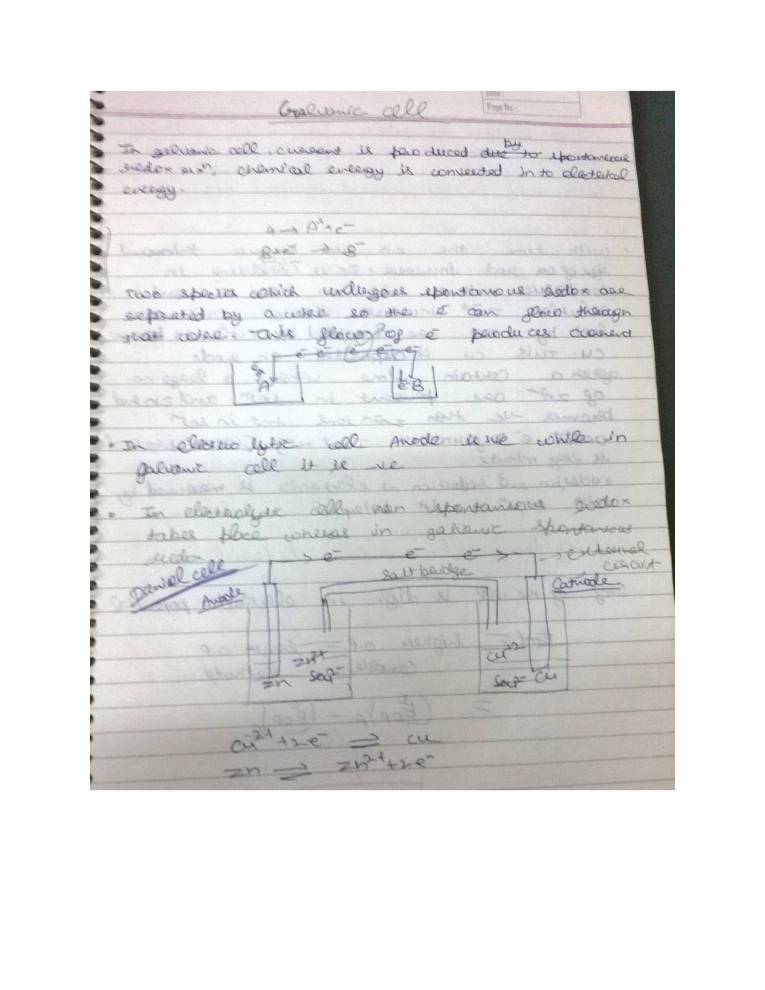 Date :
Page No :
Galvanic cell
In galvanic cell, current is produced due to by spontaneous
redox rxⁿ, chemical energy is converted in to electrical
energy.
A → A⁺ + e⁻
B + e⁻ → B⁻
Two species which undergoes spontaneous redox are
separated by a wire so the e⁻ can flow through
that wire. This flow of e⁻ produces current
e⁻ e⁻ e⁻ e⁻ e⁻
A e⁻ B
• In electrolytic cell Anode is +ve while in
galvanic cell it is -ve
• In electrolytic cell non spontaneous redox
takes place whereas in galvanic spontaneous
redox
Daniel cell
→ e⁻ e⁻ e⁻ → → external
circuit
Salt bridge
Anode Cathode
Zn²⁺ Cu⁺²
Zn SO₄²⁻ SO₄²⁻ Cu
Cu²⁺ + 2e⁻ ⇌ Cu
Zn ⇌ Zn²⁺ + 2e⁻